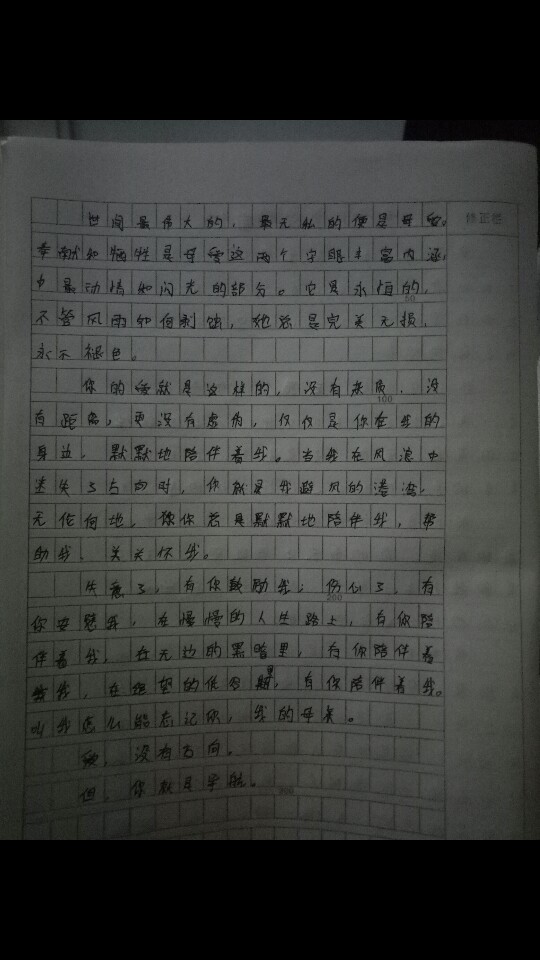 世间最伟大的，最无私的便是母爱。 修正栏
奉献和牺牲是母爱这两个字眼丰富内涵
中最动情如闪光的部分。它是永恒的，
50
不管风雨如何剥蚀，她总是完美无损，
永不褪色。
你的爱就是这样的，没有杂质，没
100
有距离，更没有虚伪，仅仅是你在我的
身边，默默地陪伴着我。当我在风浪中
迷失了方向时，你就是我避风的港湾，
无论何地，你总是默默地陪伴我，帮
助我、关关怀我。
失意了，有你鼓励我；伤心了，有
200
你安慰我，在慢慢的人生路上，有你陪
伴着我，在无边的黑暗里，有你陪伴着
我，在绝望的低谷里，有你陪伴着我。
叫我怎么能忘记你，我的母亲。
爱，没有方向。
但，你就是导航。
300